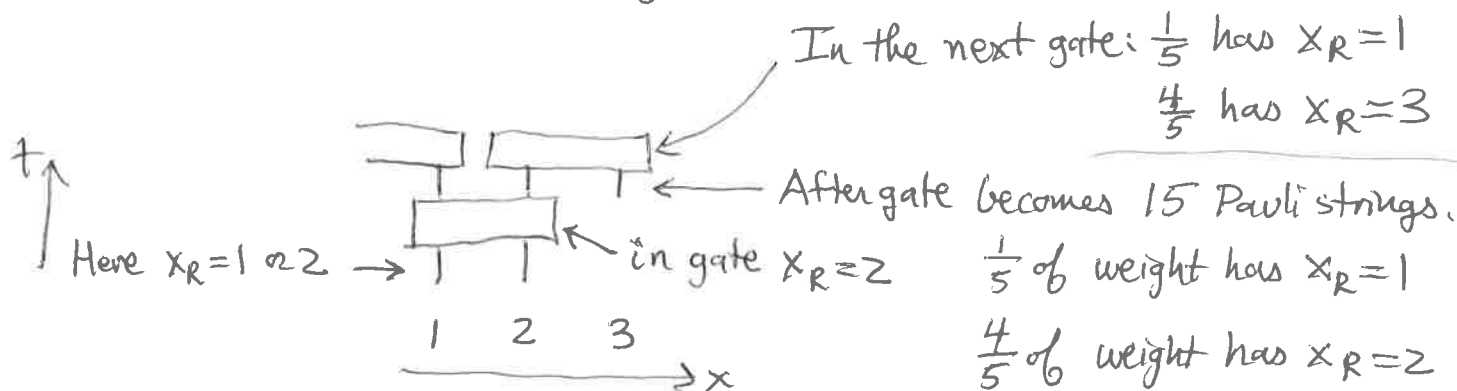 In the next gate: 1/5 has x_R=1
4/5 has x_R=3
t
After gate becomes 15 Pauli strings.
Here x_R=1 or 2
in gate x_R=2
1/5 of weight has x_R=1
1 2 3
4/5 of weight has x_R=2
x